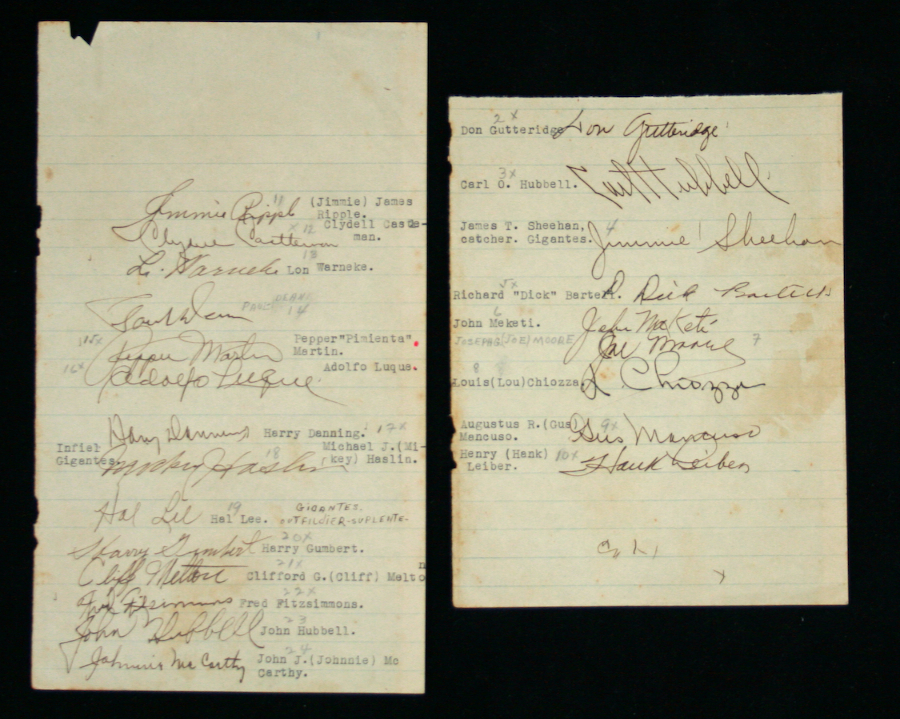 11
Jimmie Ripple (Jimmie) James
Ripple.
Clydell Castle-
man.
x 12
Clydell Castleman
13
L. Warneke Lon Warneke.
14
15x
Pepper Martin Pepper"Pimienta"
Martin.
16x
Adolfo Luque Adolfo Luque.
Harry Danning Harry Danning. 17x
Infiel
Gigantes
Mickey Haslin 18 Michael J.(Mi-
key) Haslin.
19
Hal Lee Hal Lee. GIGANTES.
OUTFILDIER-SUPLENTE-
20x
Harry Gumbert Harry Gumbert.
21x
Cliff Melton Clifford G.(Cliff) Melto
n
22x
Fred Fitzsimmons Fred Fitzsimmons.
23
John Hubbell John Hubbell.
24
Johnnie McCarthy John J.(Johnnie) Mc
Carthy.
2x
Don Gutteridge Don Gutteridge
3x
Carl O. Hubbell. Carl Hubbell
James T. Sheehan, 4
catcher. Gigantes. Jimmie Sheehan
5x
Richard "Dick" Bartell. Dick Bartell
6
John Meketi. John McKeti
JOSEPH G(JOE) MOORE Joe Moore 7
8
Louis(Lou)Chiozza L. Chiozza
Augustus R.(Gus) 9x
Mancuso. Gus Mancuso
Henry (Hank) 10x
Leiber. Hank Leiber